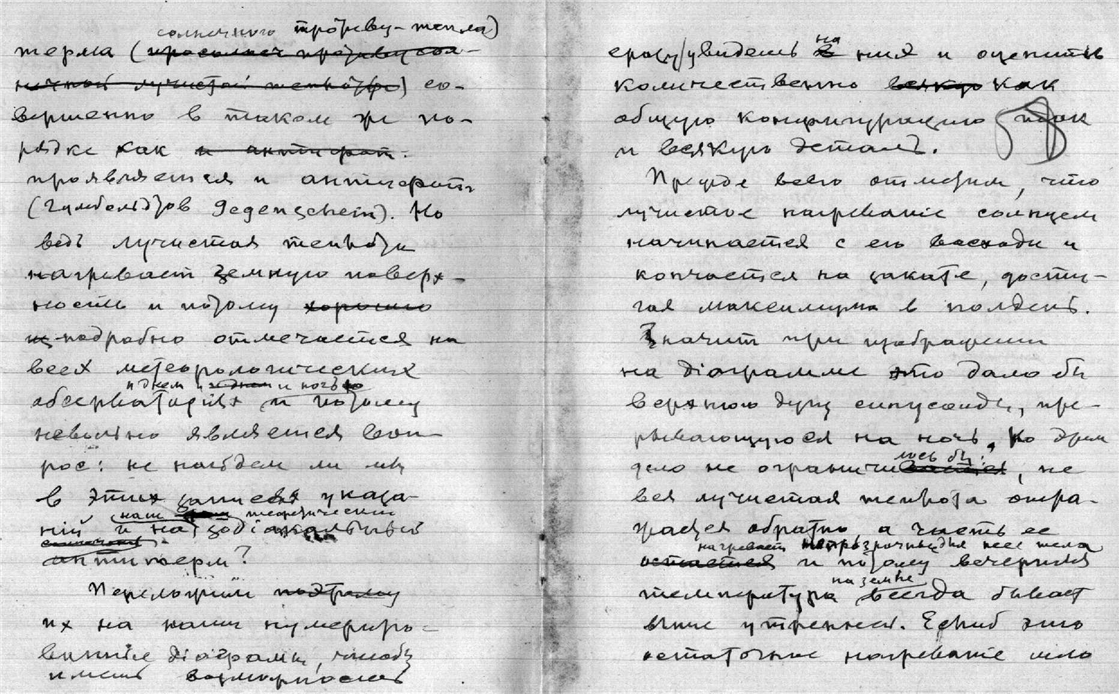 солнечного прогреву-тепла)
терма (
) со-
вершенно в таком же по-
рядке как и антифот.
проявляется и антифот
(Гумбольдтов Gegenschein). Но
ведь лучистая теплота
нагревает земную поверх-
ность и потому хорошо
подробно отмечается на
всех метеорологических
и днем и ночью
обсерваторіях и потому
невольно является воп-
рос: не найдем ли мы
в этих записях указа-
наш теоретический
ній и на зодіакальный
антитерм?
Переложим
их на наши нумериро-
ванные діограммы, чтобы
иметь возможность
сразу увидеть на
них и оценить
количественно всякую как
общую конфигурацию так
и всякую деталь.
Прежде всего отметим, что
лучистое нагреваніе солнцем
начинается с его восхода и
кончается на закате, дости-
гая максимума в полдень.
Значит при изображении
на діограмме это дало бы
верхнюю дугу синусоиды, пре-
рывающуюся на ночь. Но
лось бы:
дело не ограничи , не
вся лучистая теплота отра-
жается обратно а часть ее
нагревает непрозрачные для нее тела
остается и потому вечерняя
на земле
температура всегда бывает
выше утренней. Если б это
остаточное нагреваніе шло